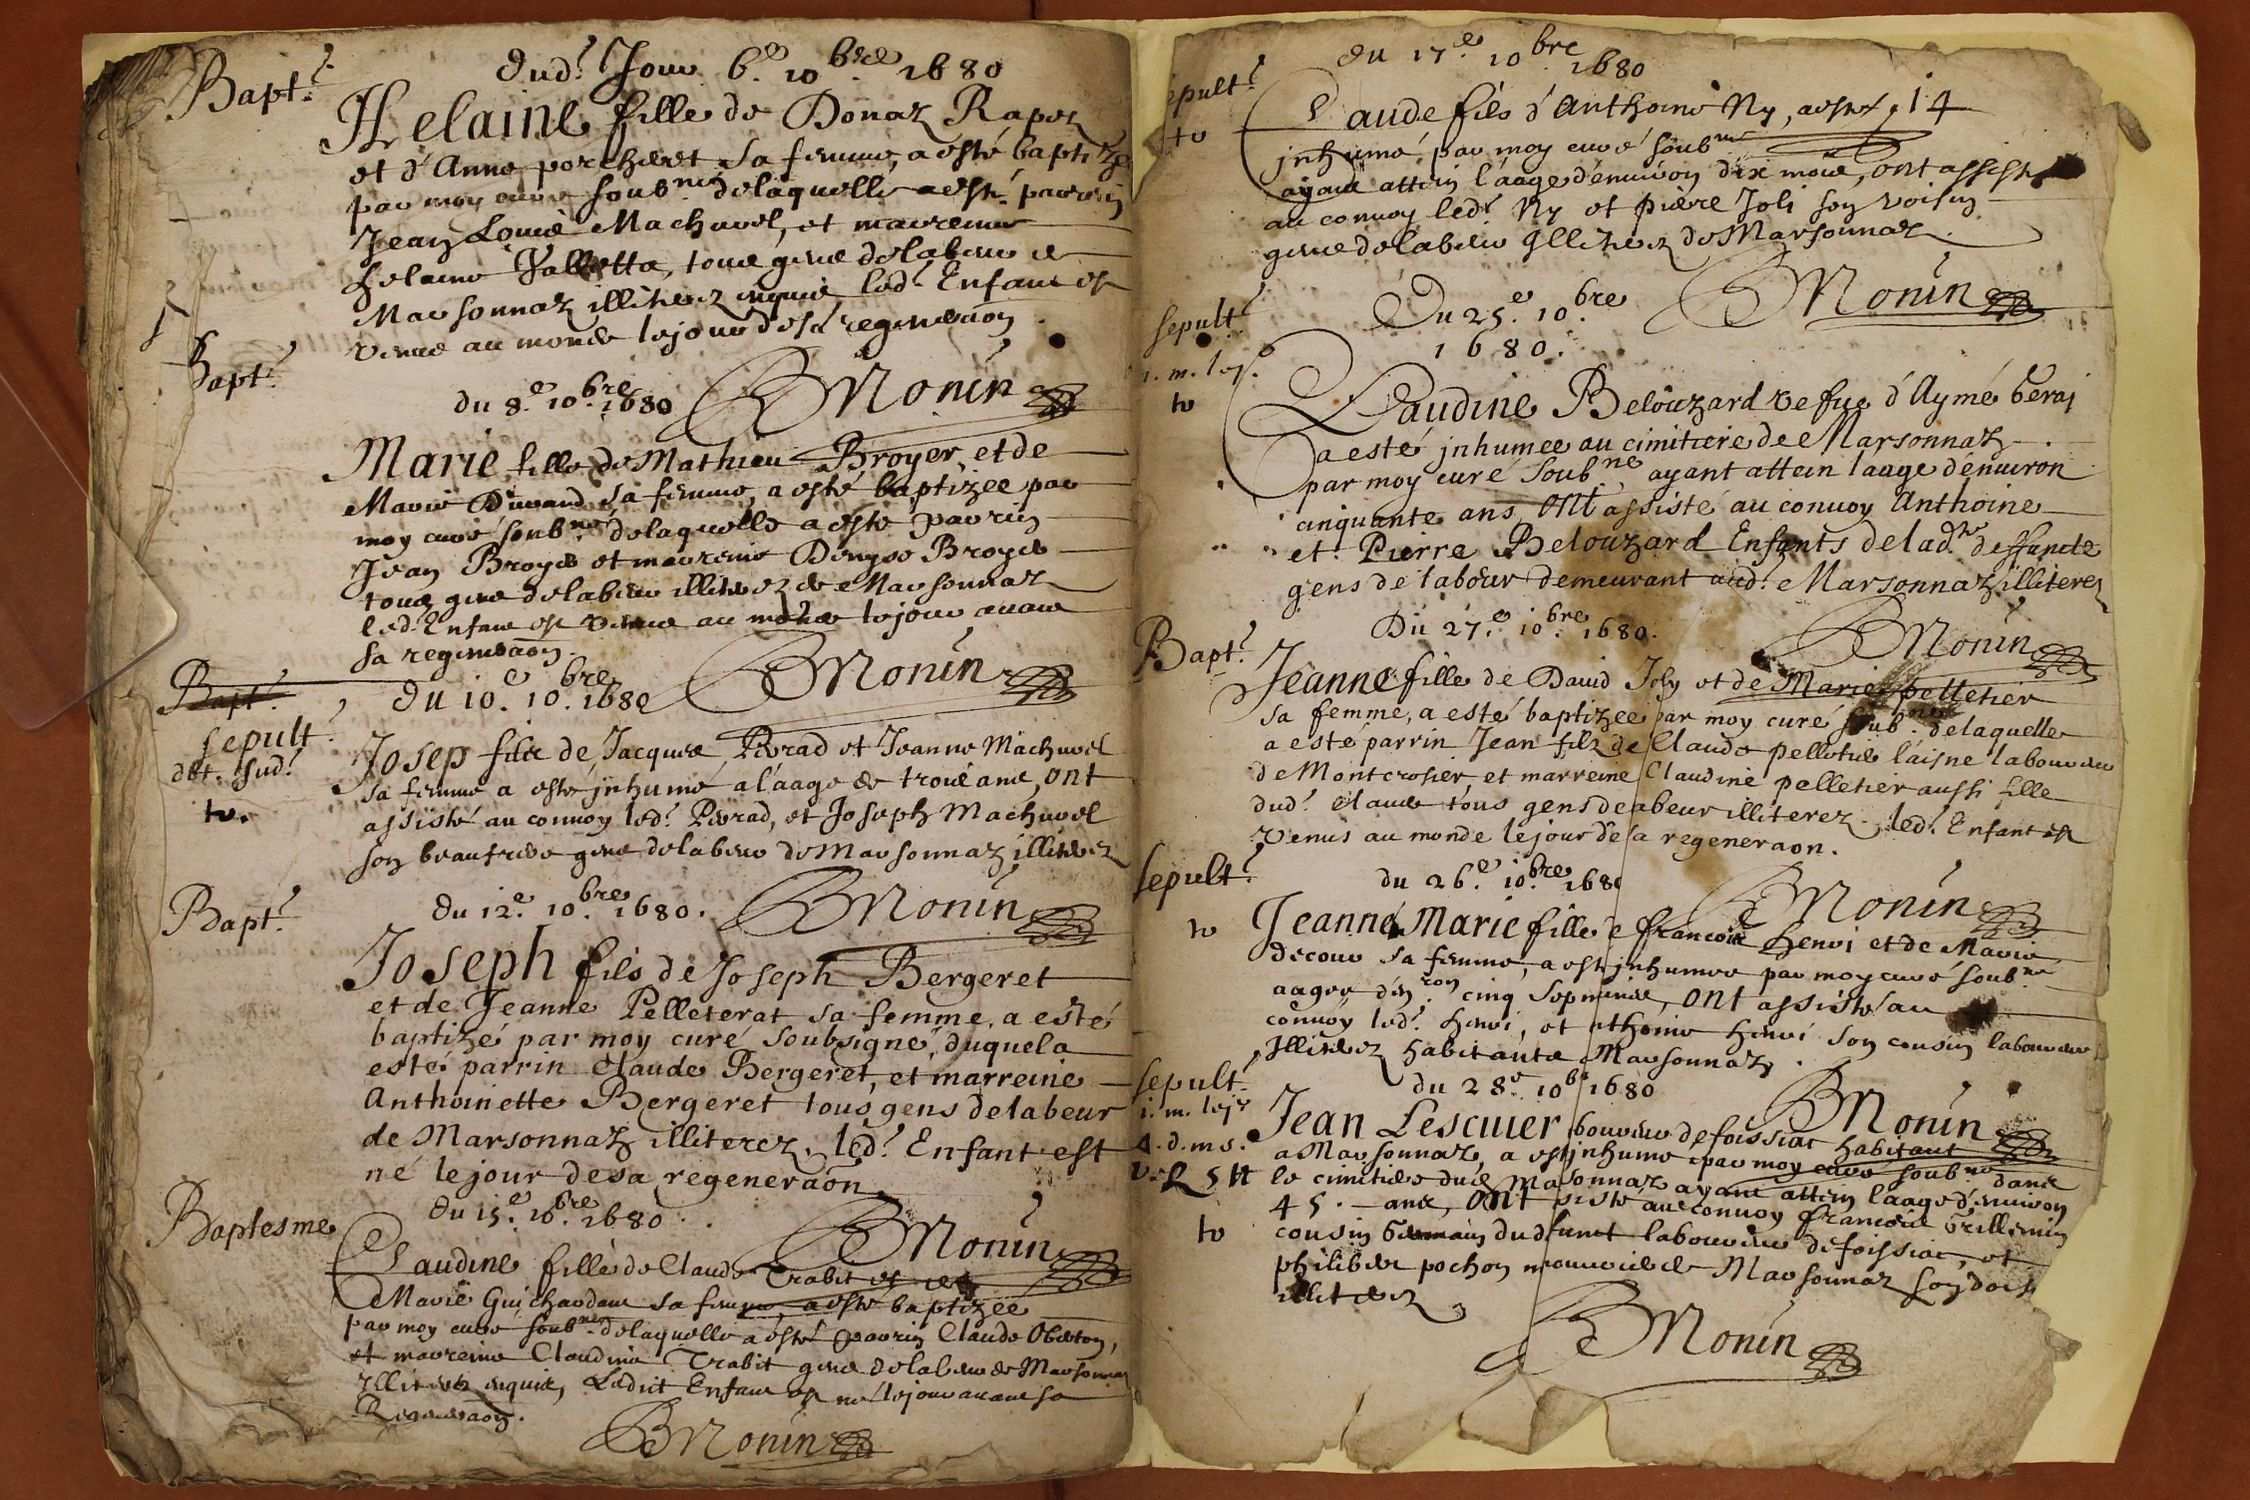 Bapt.
dud. Jour 6e. 10bre 1680
Helaine fille de Donaz Rapoz
et d'Anne porcheret sa femme, a esté baptizée
par moy curé soubné delaquelle a esté parrin
Jean Louis Machurel, et marreine
helaine Valletta, tous gens delabeur de
Marsonnaz illiterez enquis, led. Enfant est
venue au monde lejour desa regeneraon
Monin
Bapt.
du 8e. 10bre. 1680
Marie fille de Mathieu Broyer, et de
Marie Durand sa femme, a esté baptizee par
moy curé soubné delaquelle a esté parrin
Jean Broyer et marreine Denyse Broyer
tous gens delabeur illiterez de Marsonnaz
led. Enfant est venue au monde lejour auant
sa regeneraon.
Monin
Bapt.
sepult.
dt. sud.
to.
du 10e. 10bre. 1680
Josep filz de Jacques Pivrad et Jeanne Machurel
sa femme a esté jnhumé a l'aage de trois ans, ont
assisté au conuoy led. Pivrad, et Joseph Machurel
son beaufrere gens delabeur de Marsonnaz illiterez
Monin
Bapt.
du 12e. 10bre. 1680.
Joseph fils de Joseph Bergeret
et de Jeanne Pelleterat sa femme, a esté
baptizé par moy curé soubsigné, duquel a
esté parrin Claude Bergeret, et marreine
Anthoinette Bergeret tous gens delabeur
de Marsonnaz illiterez. led. Enfant est
né lejour desa regeneraon
Monin
Baptesme
du 15e. 10bre. 1680.
Claudine fille de Claude Trabit et de
Marie Guichardan sa femme, a esté baptizée
par moy curé soubné delaquelle a esté parrin Claude Oberton,
et marreine Claudine Trabit gens delabeur de Marsonnaz
Illiterez enquis, Ledict Enfant est né lejour auant sa
Regeneraon.
Monin
sepult.
to
du 17e. 10bre 1680
Claude fils d'Anthoine Ny, aesté, 14
jnhumé, par moy curé soubné
ayant attein l'aage d'enuiron dix mois, ont assisté
au conuoy led. Ny et pierre Joli son voisin
gens delabeur Illiterez de Marsonnaz.
Monin
sepult.
1. m. lej.
to
Du 25e. 10bre
1680.
Claudine Belouzard vefue d'Aymé Beraj
a esté jnhumee au cimitiere de Marsonnaz
par moy curé soubné, ayant attein laage d'enuiron
cinquante ans, ont assisté au conuoy Anthoine
et Pierre Belouzard Enfants delad. deffuncte
gens de labeur demeurant aud. Marsonnaz illiterez
Monin
Bapt.
Du 27e. 10bre. 1680.
Jeanne fille de Dauid Joly et de Marie pelletier
sa femme, a esté baptizee par moy curé soubné. delaquelle
a esté parrin Jean filz de Claude pelletier l'aisne laboureur
de Montcrosier, et marreine Claudine pelletier aussi fille
dud. Claude tous gens deabeur illiterez, led. Enfant est
venus au monde lejour desa regeneraon.
Monin
sepult.
to
du 26e. 10bre 1680
Jeanne Marie fille de francois henri et de Marie
decour sa femme, a esté jnhumee par moy curé soubné
aagee d'enron cinq sepmaines, ont assisté au
conuoy led. henri, et Athoine henri son cousin laboureur
Illiterez habitants Marsonnaz.
Monin
sepult.
1. m. lejr
4. d. m s.
to
du 28e. 10bre 1680
Jean Lescuier boureur de foissiat habitant
a Marsonnaz, a esté jnhumé par moy curé soubné dans
le cimitiere dud. Marsonnaz ayant attein laage d'enuiron
45. ans, ont assisté au conuoy francois Grillemin
cousin Germain dud. defunct laboureur de foissiat, et
philiber pochon de Marsonnaz son
illiterez
Monin